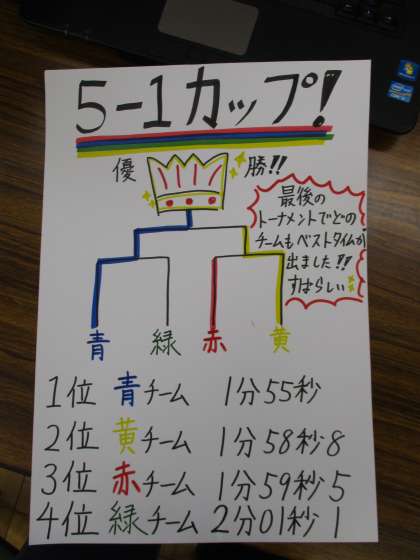 5-1カップ!
優 勝!!
最後の
トーナメントでどの
チームもベストタイムが
出ました!!
すばらしい
青 緑 赤 黄
1位 青チーム 1分55秒
2位 黄チーム 1分58秒8
3位 赤チーム 1分59秒5
4位 緑チーム 2分01秒1